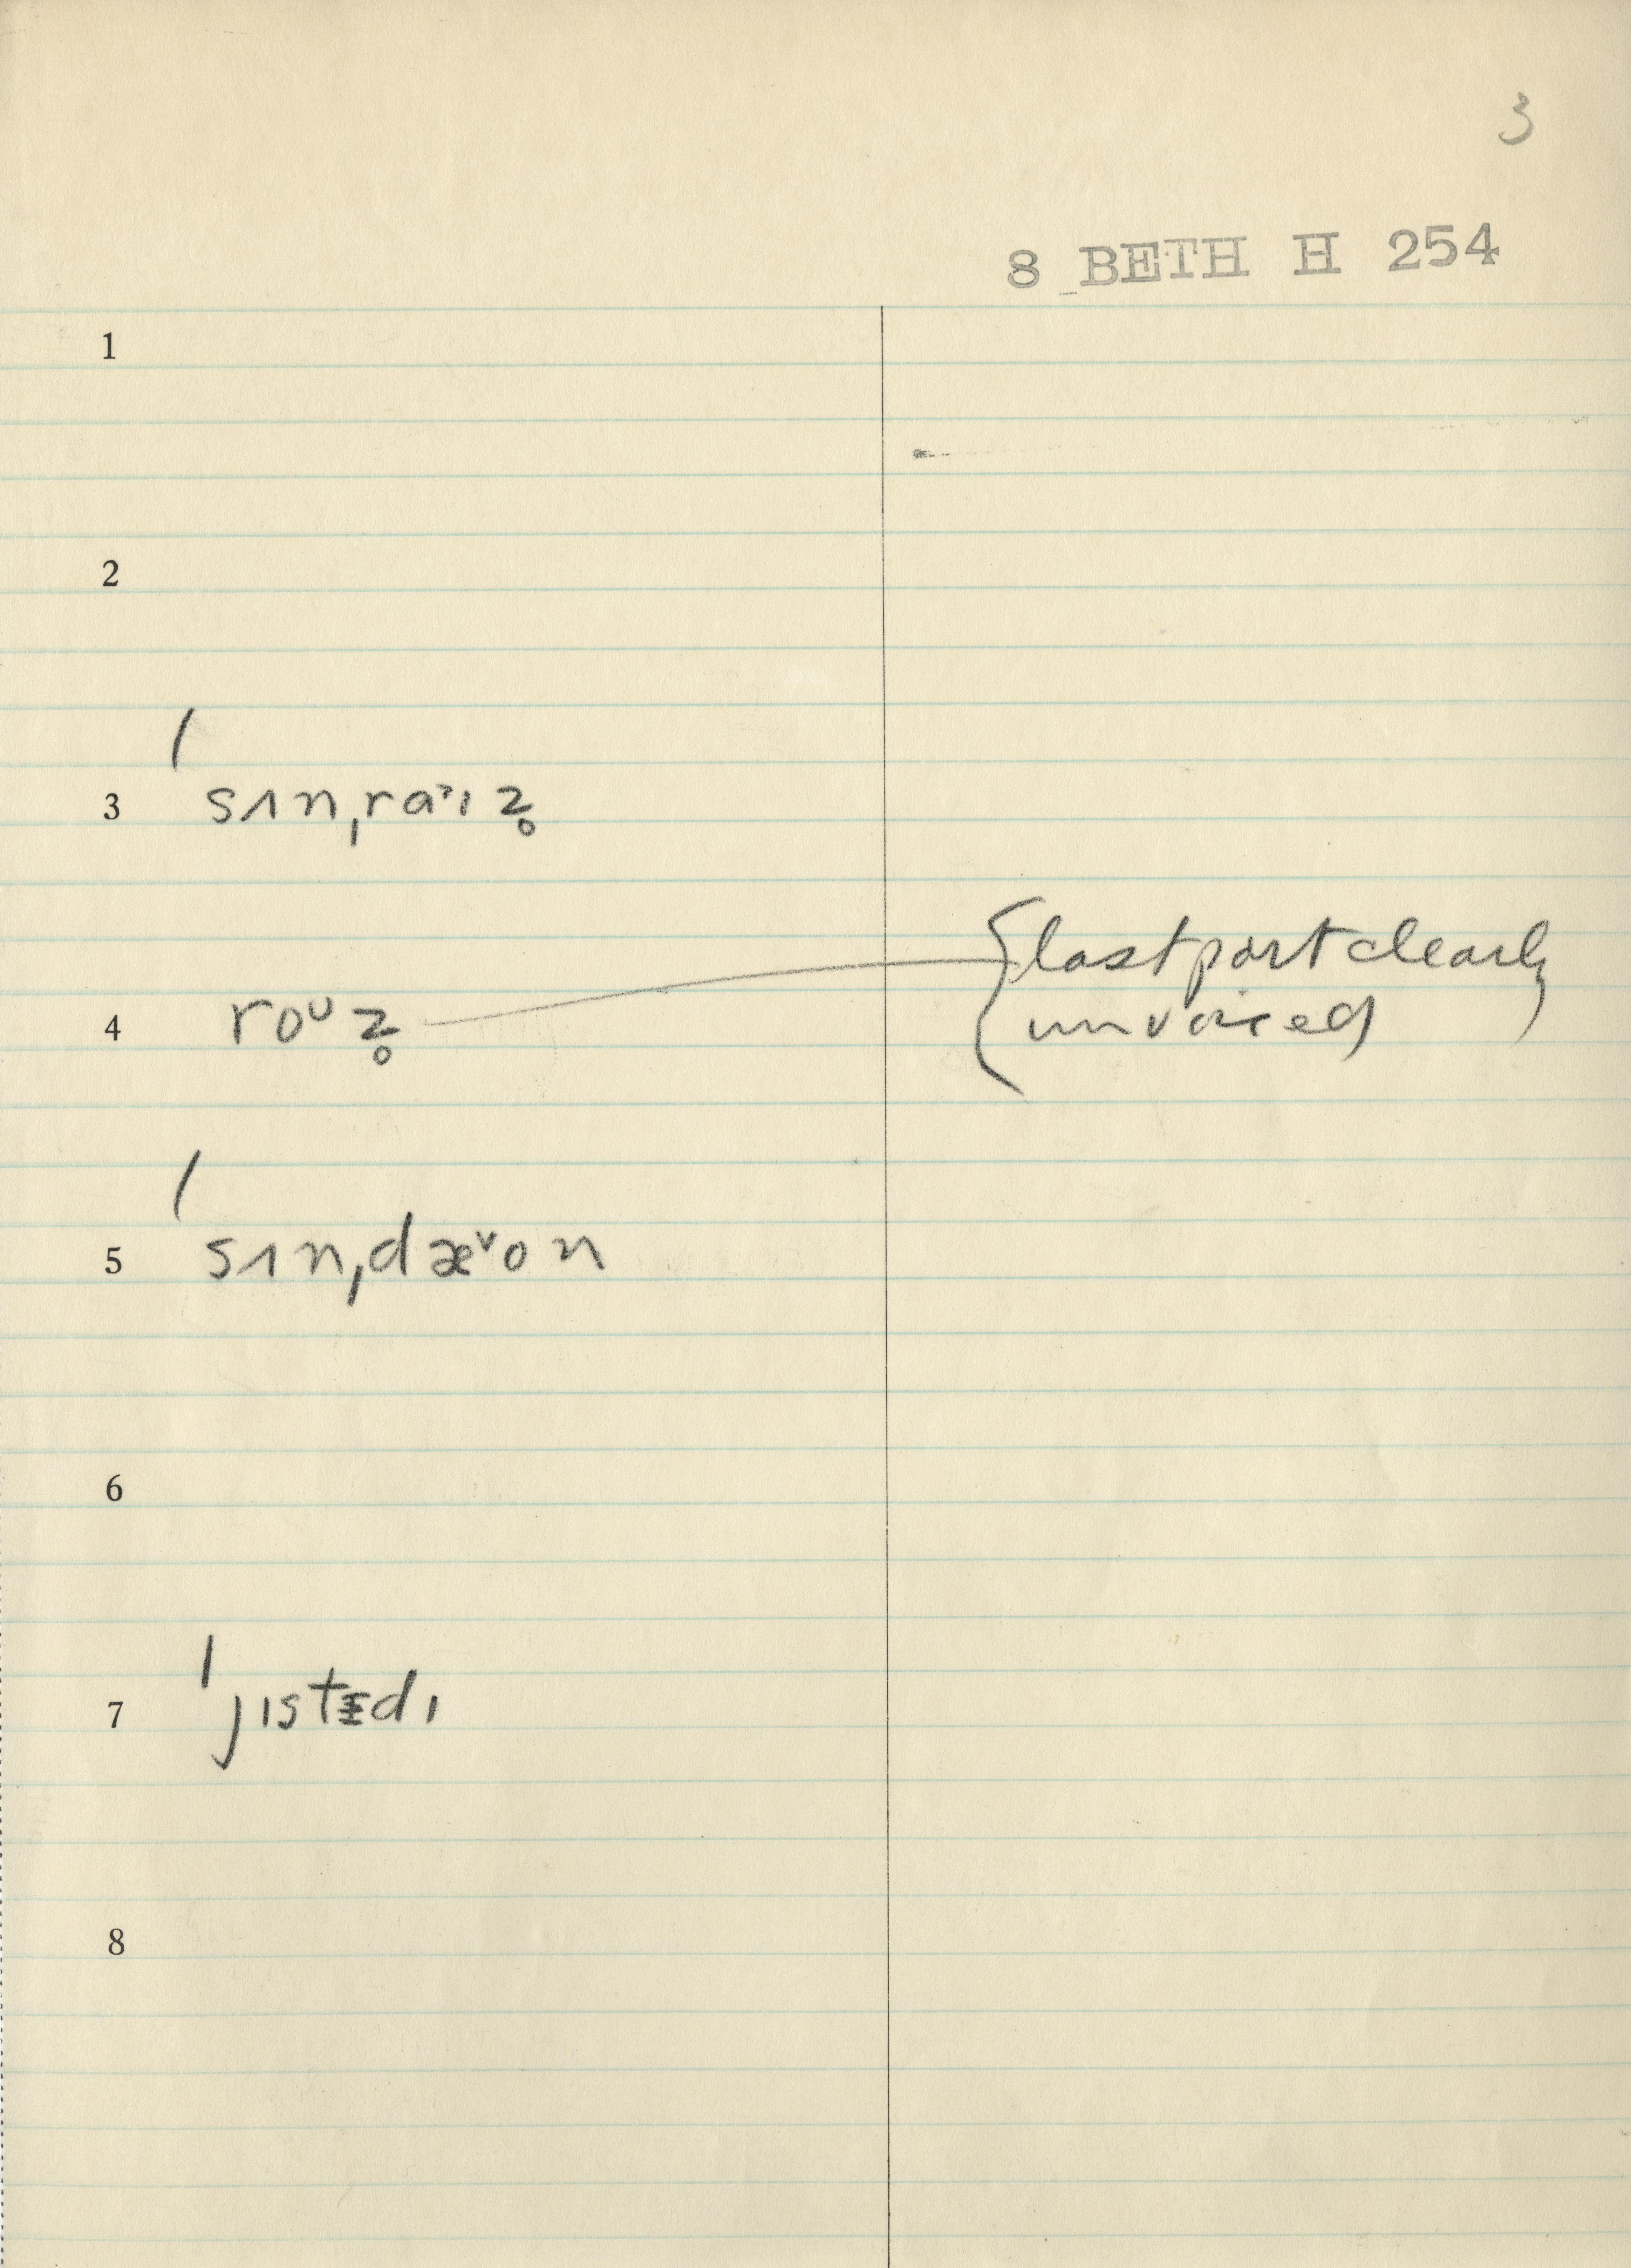 3
8 BETH H 254
1
2
3 ˈsʌnˌraˑɪz̥
4 roᴜz̥ {last part clearly
unvoiced
5 ˈsʌnˌdæˇon
6
7 ˈjɪstᵻdɪ
8